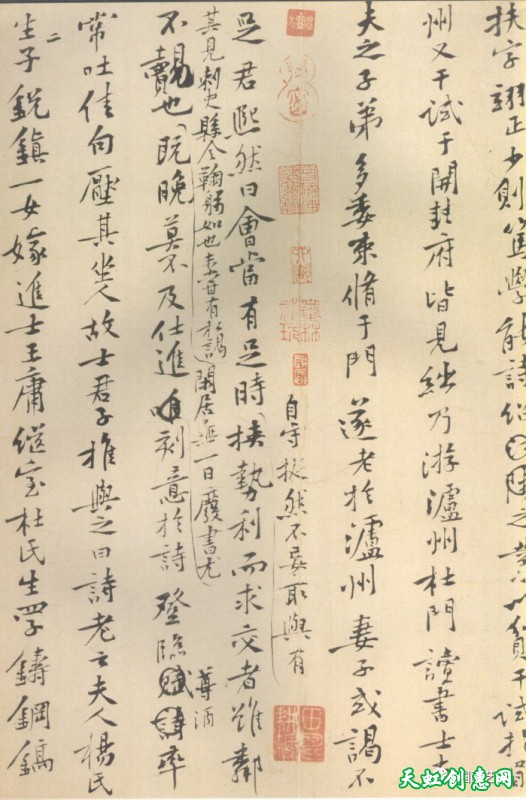 扶字翊正少則篤學能詩
州又干試于開封府皆見絀乃游瀘州杜門讀書士大
夫之子弟多委束脩于門遂老於瀘州妻子或謁不
自守挺然不妄取與有
足君熙然曰會當有足時挾勢利而求交者雖鄰
其見刺史縣令鞠躬如也未嘗有私謁閑居無一日廢書尤
不覿也既晚莫不及仕進唯刻意於詩登臨尊酒率
常吐佳句壓其坐人故士君子推與之曰詩老云夫人楊氏
生二子銳鎮一女嫁進士王庸繼室杜氏生四子鑄鋼鎬
天虹创意网